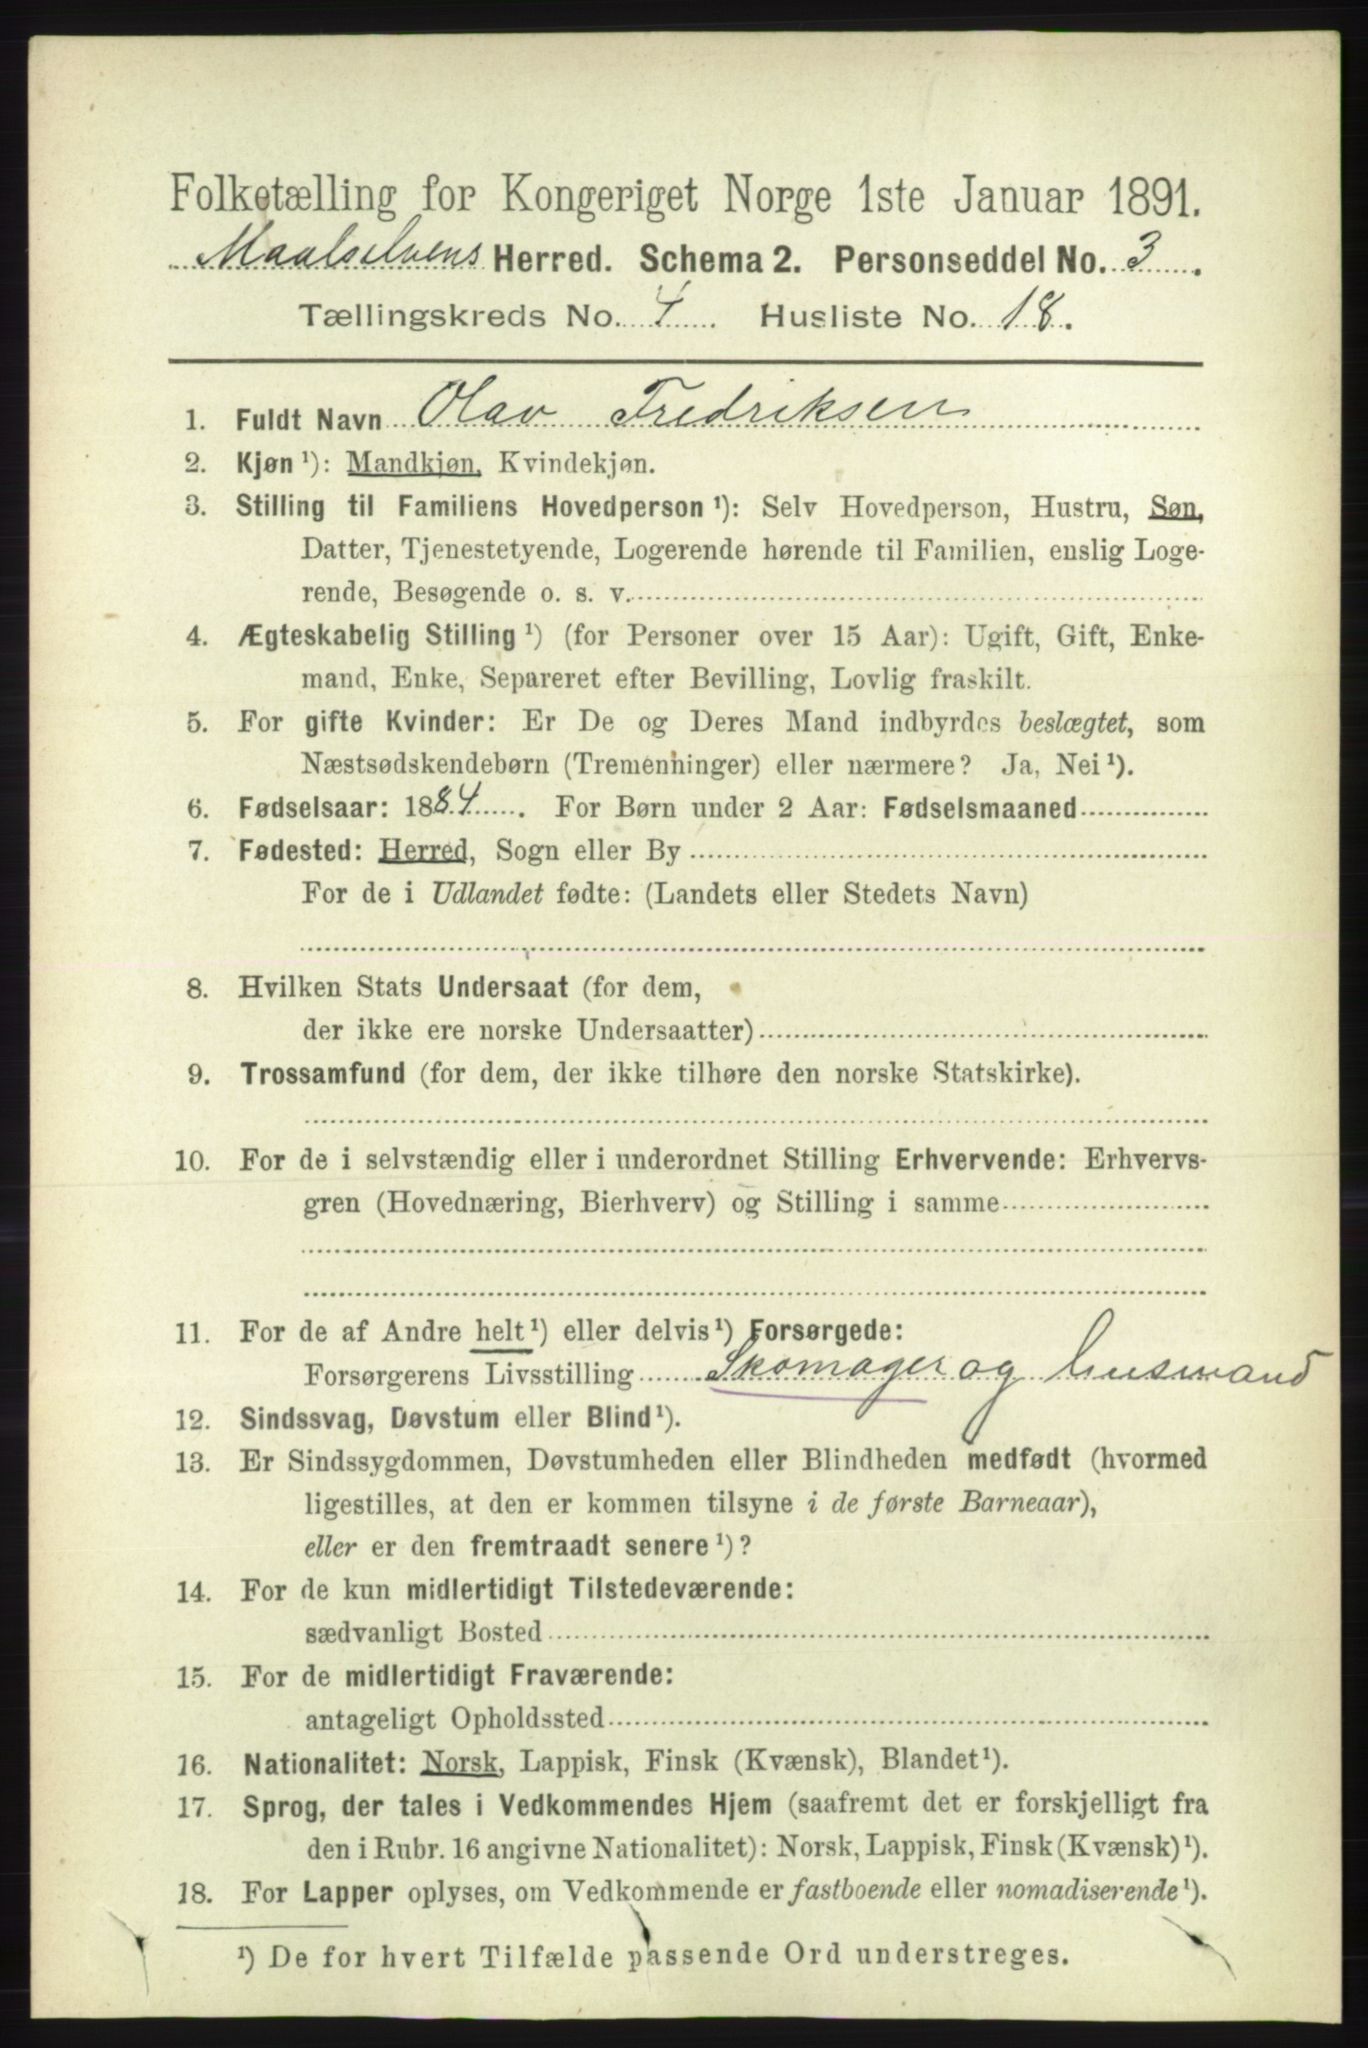 Folketælling for Kongeriget Norge 1ste Januar 1891.
Maalselvens Herred. Schema 2. Personseddel No. 3.
Tællingskreds No. 4. Husliste No. 18.
1. Fuldt Navn Olav Fredriksen
2. Kjøn¹): Mandkjøn, Kvindekjøn.
3. Stilling til Familiens Hovedperson¹): Selv Hovedperson, Hustru, Søn,
Datter, Tjenestetyende, Logerende hørende til Familien, enslig Loge-
rende, Besøgende o. s. v.
4. Ægteskabelig Stilling¹) (for Personer over 15 Aar): Ugift, Gift, Enke-
mand, Enke, Separeret efter Bevilling, Lovlig fraskilt.
5. For gifte Kvinder: Er De og Deres Mand indbyrdes beslægtet, som
Næstsødskendebørn (Tremenninger) eller nærmere? Ja, Nei¹).
6. Fødselsaar: 1884. For Børn under 2 Aar: Fødselsmaaned
7. Fødested: Herred, Sogn eller By
For de i Udlandet fødte: (Landets eller Stedets Navn)
8. Hvilken Stats Undersaat (for dem,
der ikke ere norske Undersaatter)
9. Trossamfund (for dem, der ikke tilhøre den norske Statskirke).
10. For de i selvstændig eller i underordnet Stilling Erhvervende: Erhvervs-
gren (Hovednæring, Bierhverv) og Stilling i samme
11. For de af Andre helt¹) eller delvis¹) Forsørgede:
Forsørgerens Livsstilling Skomager og husmand
12. Sindssvag, Døvstum eller Blind¹).
13. Er Sindssygdommen, Døvstumheden eller Blindheden medfødt (hvormed
ligestilles, at den er kommen tilsyne i de første Barneaar),
eller er den fremtraadt senere¹)?
14. For de kun midlertidigt Tilstedeværende:
sædvanligt Bosted
15. For de midlertidigt Fraværende:
antageligt Opholdssted
16. Nationalitet: Norsk, Lappisk, Finsk (Kvænsk), Blandet¹).
17. Sprog, der tales i Vedkommendes Hjem (saafremt det er forskjelligt fra
den i Rubr. 16 angivne Nationalitet): Norsk, Lappisk, Finsk (Kvænsk)¹).
18. For Lapper oplyses, om Vedkommende er fastboende eller nomadiserende¹).
¹) De for hvert Tilfælde passende Ord understreges.